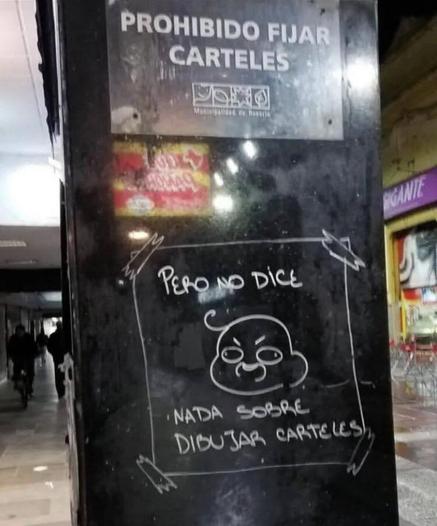 PROHIBIDO FIJAR
CARTELES
Municipalidad de Rosario
PERO NO DICE
NADA SOBRE
DIBUJAR CARTELES
GIGANTE